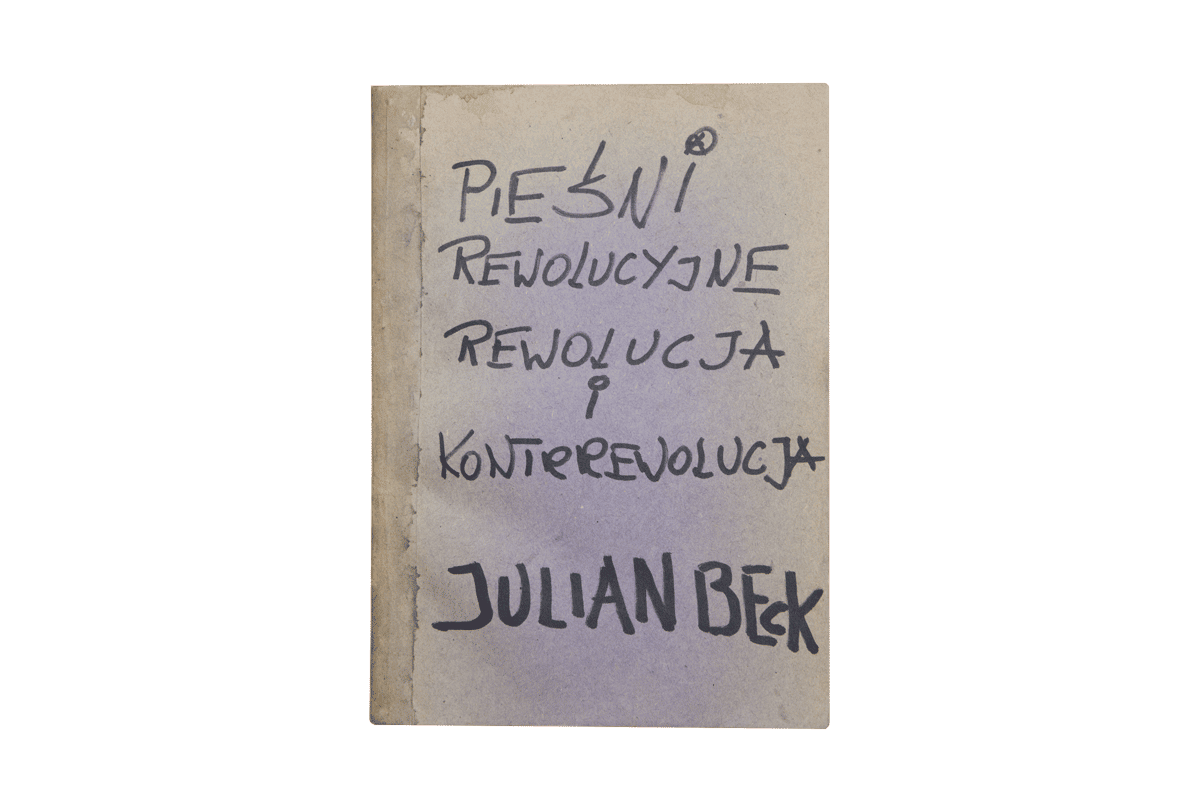 PIEŚNI
REWOLUCYJNE
REWOLUCJA
i
KONTRREWOLUCJA
JULIAN BECK